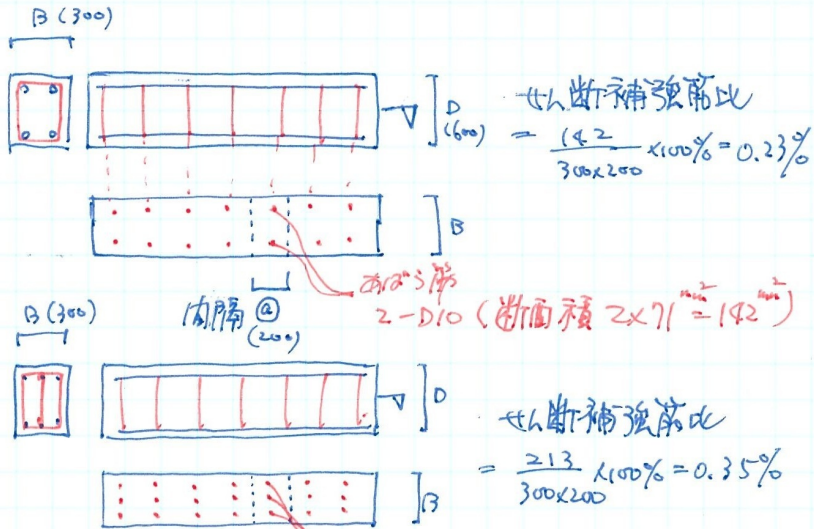 B (300)
D
(600)
せん断補強筋比
= 142 / 300×200 ×100% = 0.23%
B
あばら筋
2-D10 (断面積 2×71mm² = 142mm²)
間隔 @
(200)
B (300)
D
せん断補強筋比
= 213 / 300×200 ×100% = 0.35%
B